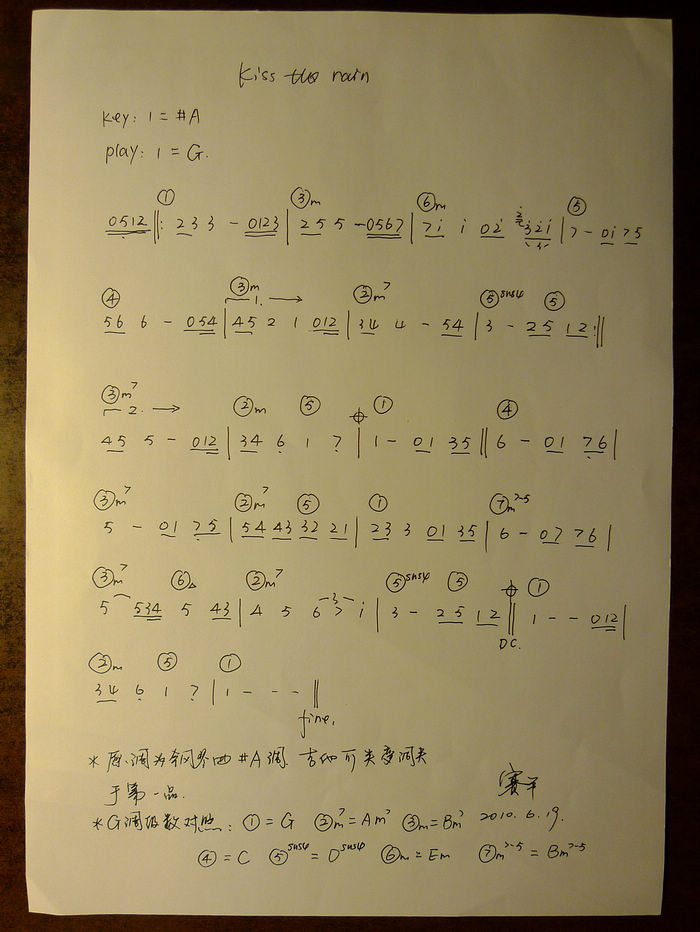 Kiss the rain
key: 1 = #A
play: 1 = G.
① ③m ⑥m ⑤
0512 ‖: 2 3 3 - 0123 | 2 5 5 - 0567 | 7 i i 0 2 3 2 i | 7 - 0 i 7 5
④ ③m 1. ②m7 ⑤sus4 ⑤
5 6 6 - 0 5 4 | 4 5 2 1 0 1 2 | 3 4 4 - 5 4 | 3 - 2 5 1 2 :‖
③m7 2. ②m ⑤ ① ④
4 5 5 - 0 1 2 | 3 4 6 1 7 | 1 - 0 1 3 5 ‖ 6 - 0 1 7 6 |
③m7 ②m7 ⑤ ① ⑦m7-5
5 - 0 1 7 5 | 5 4 4 3 3 2 2 1 | 2 3 3 0 1 3 5 | 6 - 0 7 7 6 |
③m7 ⑥△ ②m7 3 ⑤sus4 ⑤ ①
5 5 3 4 5 4 3 | 4 5 6 7 i | 3 - 2 5 1 2 ‖ 1 - - 0 1 2 |
D.C.
②m ⑤ ①
3 4 6 1 7 | 1 - - - ‖
fine.
* 原调为钢琴曲 #A调. 吉他可 变调夹
于第一品.
* G调级数对照: ① = G ②m7 = Am7 ③m = Bm7 2010.6.19.
④ = C ⑤sus4 = Dsus4 ⑥m = Em ⑦m7-5 = Bm7-5